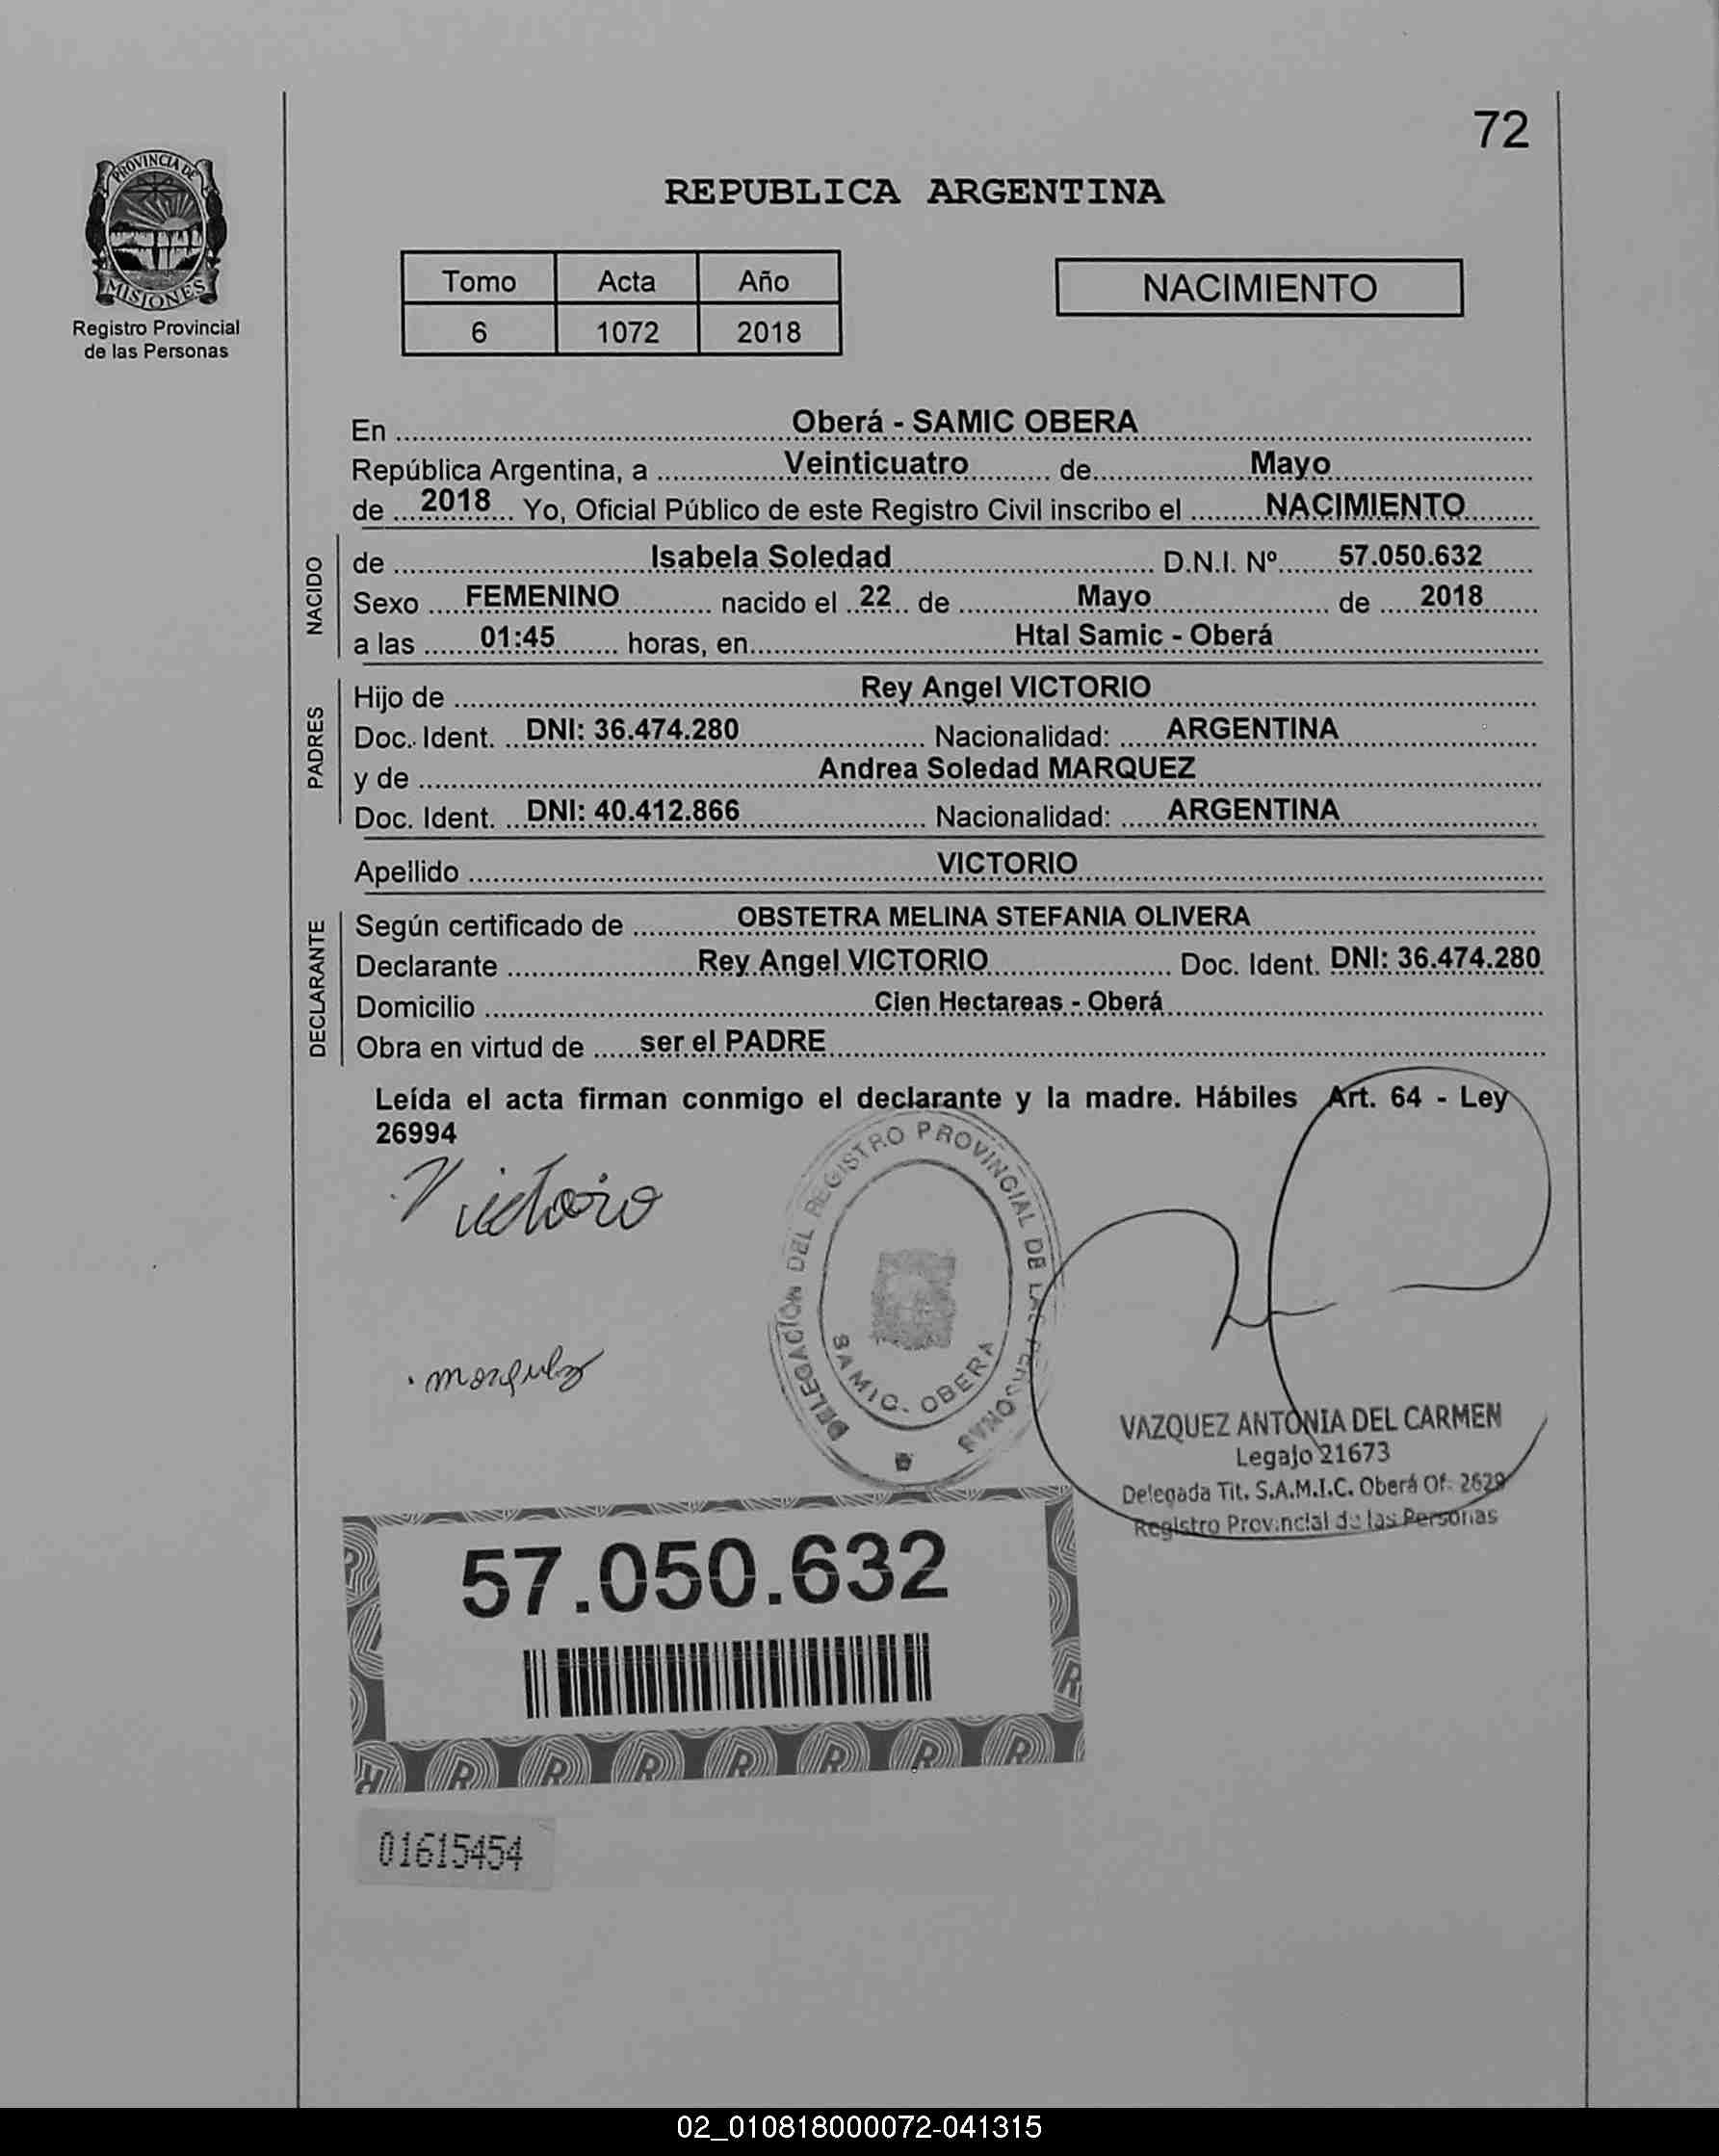 72
PROVINCIA DE
MISIONES
Registro Provincial
de las Personas
REPUBLICA ARGENTINA
Tomo Acta Año
6 1072 2018
NACIMIENTO
En Oberá - SAMIC OBERA
República Argentina, a Veinticuatro de Mayo
de 2018 Yo, Oficial Público de este Registro Civil inscribo el NACIMIENTO
NACIDO
de Isabela Soledad D.N.I. Nº 57.050.632
Sexo FEMENINO nacido el 22 de Mayo de 2018
a las 01:45 horas, en Htal Samic - Oberá
PADRES
Hijo de Rey Angel VICTORIO
Doc. Ident. DNI: 36.474.280 Nacionalidad: ARGENTINA
y de Andrea Soledad MARQUEZ
Doc. Ident. DNI: 40.412.866 Nacionalidad: ARGENTINA
Apellido VICTORIO
DECLARANTE
Según certificado de OBSTETRA MELINA STEFANIA OLIVERA
Declarante Rey Angel VICTORIO Doc. Ident. DNI: 36.474.280
Domicilio Cien Hectareas - Oberá
Obra en virtud de ser el PADRE
Leída el acta firman conmigo el declarante y la madre. Hábiles Art. 64 - Ley
26994
Victorio
DELEGACIÓN DEL REGISTRO PROVINCIAL DE LAS PERSONAS
SAMIC. OBERA
marquez
VAZQUEZ ANTONIA DEL CARMEN
Legajo 21673
Delegada Tit. S.A.M.I.C. Oberá Of. 2629
Registro Provincial de las Personas
57.050.632
01615454
02_010818000072-041315